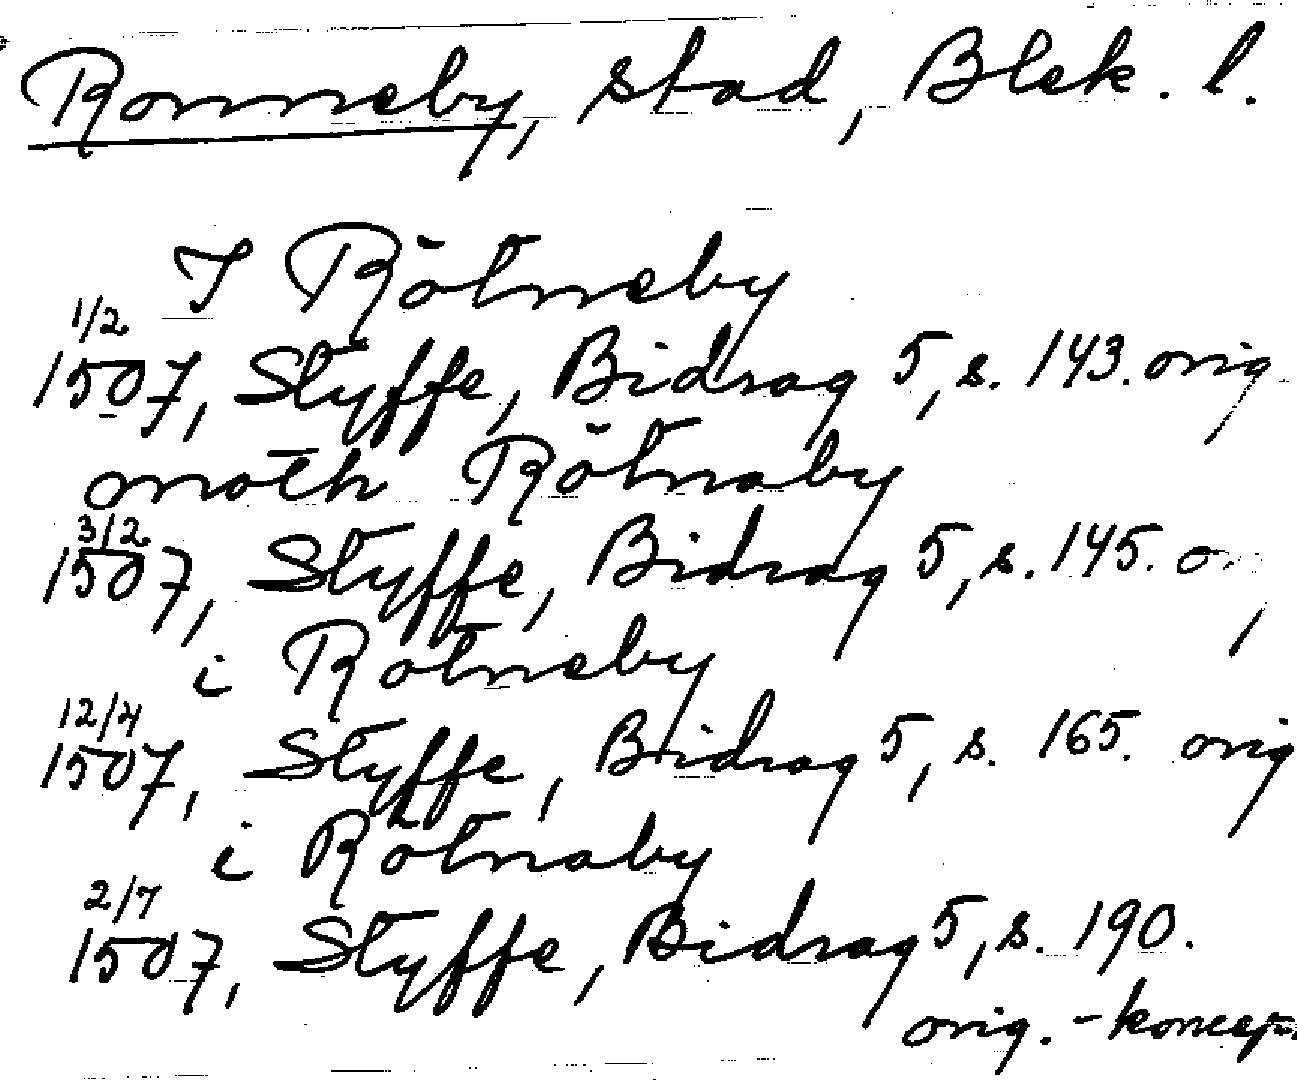 Ronneby, stad, Blek. l.
I Rötneby
1/2
1507, Styffe, Bidrag 5, s. 143. orig
moth Rötnaby
3/2
1507, Styffe, Bidrag 5, s. 145. o
i Rotneby
12/4
1507, Styffe, Bidrag 5, s. 165. orig
i Rötnaby
2/7
1507, Styffe, Bidrag 5, s. 190.
orig. - koncept